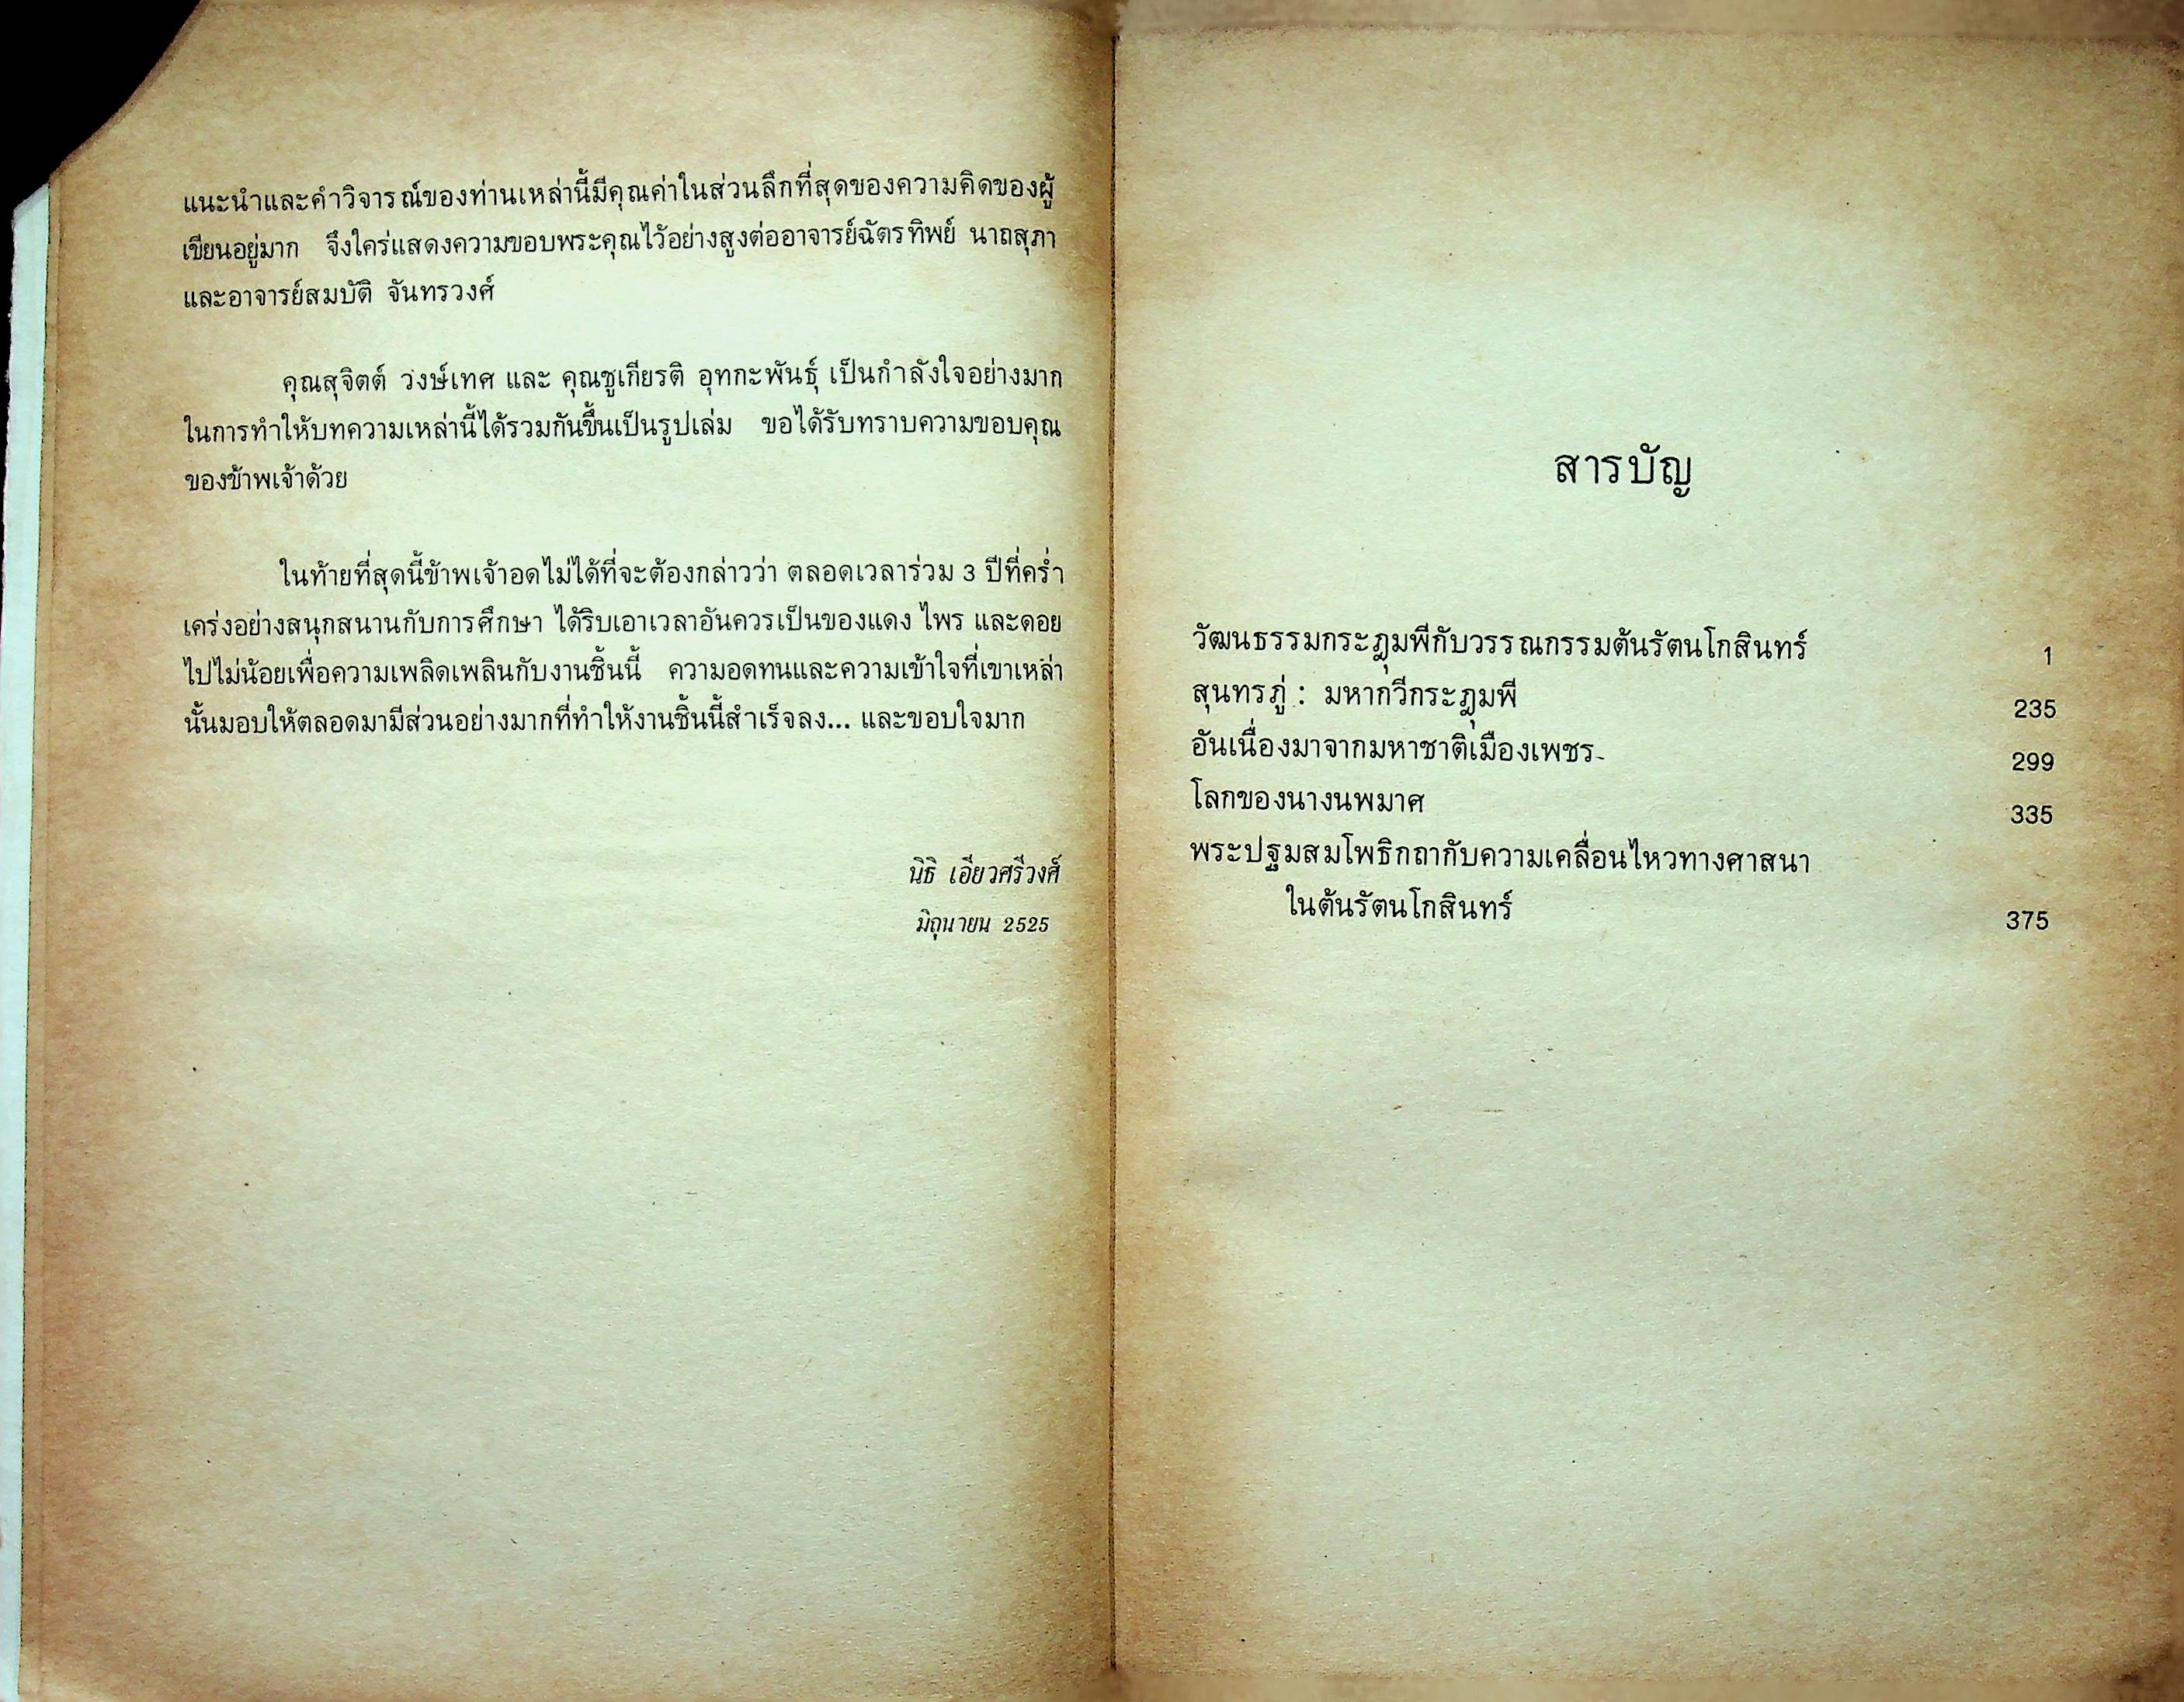 แนะนำและคำวิจารณ์ของท่านเหล่านี้มีคุณค่าในส่วนลึกที่สุดของความคิดของผู้
เขียนอยู่มาก จึงใคร่แสดงความขอบพระคุณไว้อย่างสูงต่ออาจารย์ฉัตรทิพย์ นาถสุภา
และอาจารย์สมบัติ จันทรวงศ์
คุณสุจิตต์ วงษ์เทศ และ คุณชูเกียรติ อุทกะพันธุ์ เป็นกำลังใจอย่างมาก
ในการทำให้บทความเหล่านี้ได้รวมกันขึ้นเป็นรูปเล่ม ขอได้รับทราบความขอบคุณ
ของข้าพเจ้าด้วย
ในท้ายที่สุดนี้ข้าพเจ้าอดไม่ได้ที่จะต้องกล่าวว่า ตลอดเวลาร่วม 3 ปีที่คร่ำ
เคร่งอย่างสนุกสนานกับการศึกษา ได้ริบเอาเวลาอันควรเป็นของแดง ไพร และดอย
ไปไม่น้อยเพื่อความเพลิดเพลินกับงานชิ้นนี้ ความอดทนและความเข้าใจที่เขาเหล่า
นั้นมอบให้ตลอดมามีส่วนอย่างมากที่ทำให้งานชิ้นนี้สำเร็จลง... และขอบใจมาก
นิธิ เอียวศรีวงศ์
มิถุนายน 2525
สารบัญ
วัฒนธรรมกระฎุมพีกับวรรณกรรมต้นรัตนโกสินทร์ 1
สุนทรภู่ : มหากวีกระฎุมพี 235
อันเนื่องมาจากมหาชาติเมืองเพชร 299
โลกของนางนพมาศ 335
พระปฐมสมโพธิกถากับความเคลื่อนไหวทางศาสนา
ในต้นรัตนโกสินทร์ 375